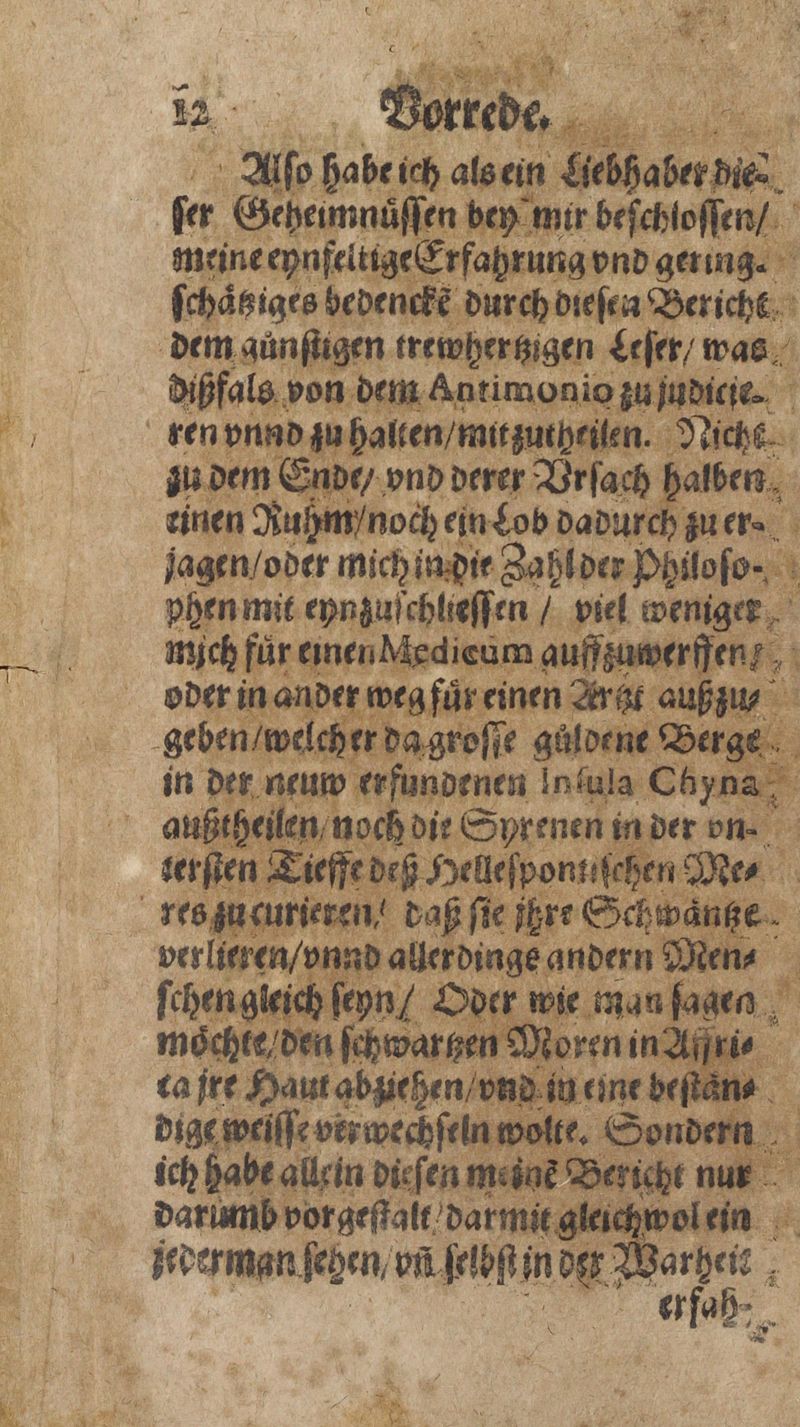 12 Vorrede.
Alſo habe ich als ein Liebhaber die-
ſer Geheimnüſſen bey mir beſchloſſen/
meine eynfeltige Erfahrung vnd gering-
ſchätziges bedenckẽ durch dieſen Bericht
dem günſtigen trewhertzigen Leſer/ was
dißfals von dem Antimonio zu judicie-
ren vnnd zu halten/mitzutheilen. Nicht
zu dem Ende/ vnd derer Vrſach halben
einen Ruhm/noch ein Lob dadurch zu er-
jagen/oder mich in die Zahl der Philoſo-
phen mit eynzuſchlieſſen / viel weniger
mich für einen Medicum auffzuwerffen/
oder in ander weg für einen Artzt außzu-
geben/welcher da groſſe güldene Berge
in der neuw erfundenen Inſula Chyna
außtheilen/noch die Syrenen in der vn-
terſten Tieffe deß Helleſpontiſchen Me-
res zu curieren/ daß ſie jhre Schwäntze
verlieren/vnnd allerdings andern Men-
ſchen gleich ſeyn/ Oder wie man ſagen
möchte/den ſchwartzen Moren in Affri-
ca jre Haut abziehen/vnd in eine beſtän-
dige weiſſe verwechſeln wolte. Sondern
ich habe allein dieſen meinẽ Bericht nur
darumb vorgeſtalt/darmit gleichwol ein
jederman ſehen/vñ ſelbſt in der Warheit
erfah-